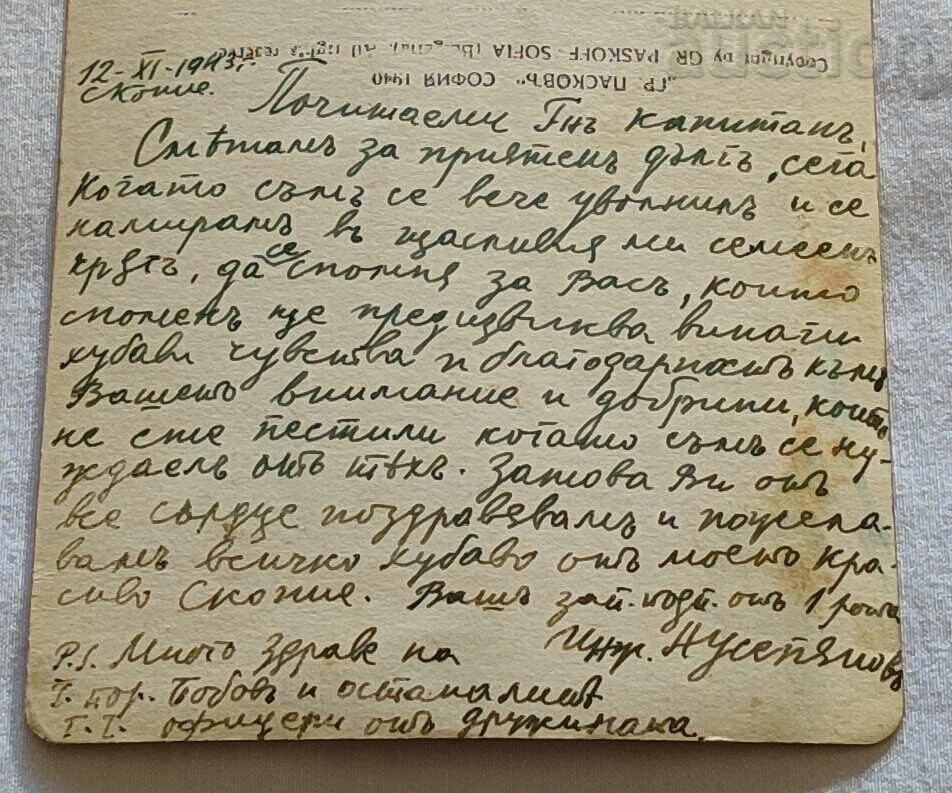 Copyright by GR. PASKOFF SOFIA (Bulgaria). All rights reserve
„ГР. ПАСКОВЪ“ СОФИЯ 1940
12-XI-1943г.
Скопие.
Почитаеми Гнъ Капитанъ,
Смѣтамъ за приятенъ дългъ, сега
когато съмъ се вече уволнилъ и се
намирамъ въ щастливия ми семеенъ
крѫгъ, да се спомня за Васъ, които
споменъ ще предизвиква винаги
хубави чувства и благодарность къмъ
Вашето внимание и добрини, които
не сте пестили когато съмъ се ну-
ждаелъ отъ тѣхъ. Затова Ви отъ
все сърдце поздравявамъ и пожела-
вамъ всичко хубаво отъ моето кра-
сиво Скопие. Вашъ зап. подп. отъ 1 рота
Инж.
P.S. Много здраве на
Г. пор. Бобовъ и останалитѣ
Г.Г. офицери отъ дружината.